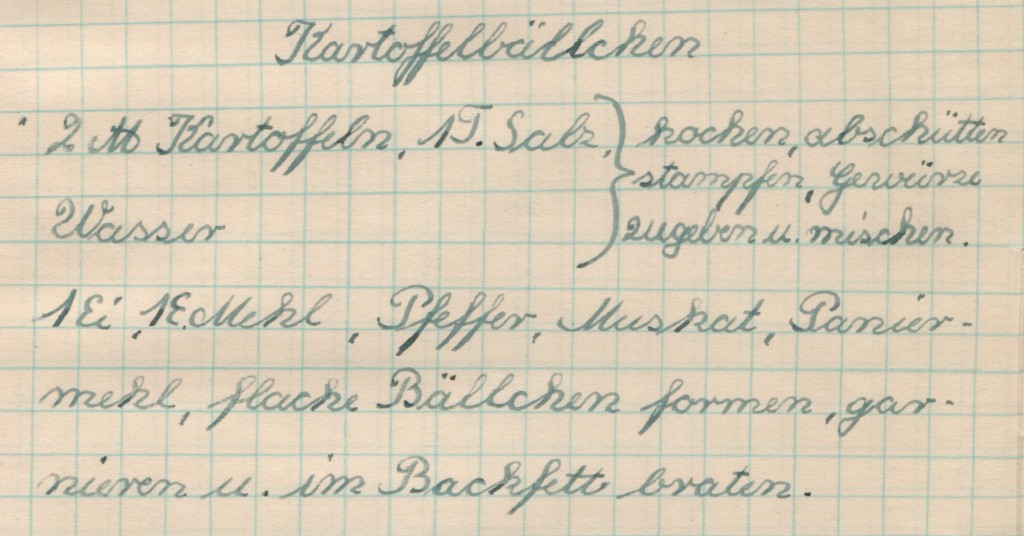 Kartoffelbällchen
2 ℔ Kartoffeln, 1T. Salz, } kochen, abschütten
stampfen, Gewürze
Wasser zugeben u. mischen.
1 Ei, 1E. Mehl, Pfeffer, Muskat, Panier-
mehl, flache Bällchen formen, gar-
nieren u. im Backfett braten.